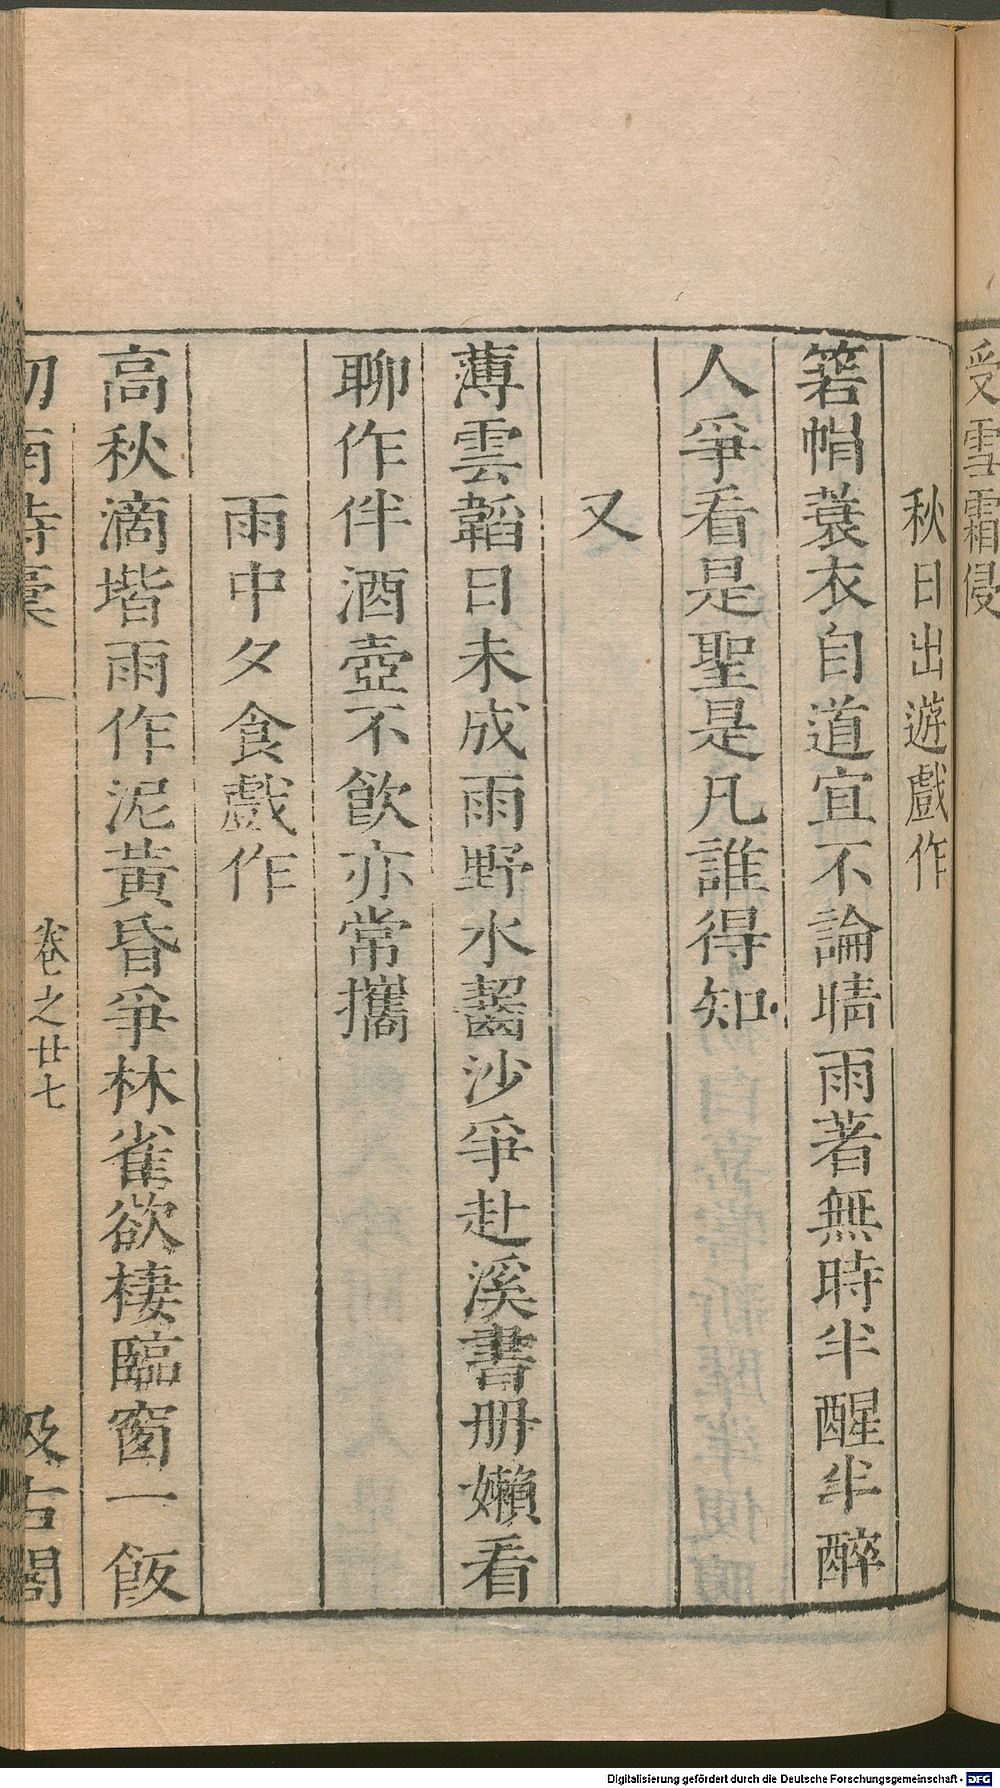 受雪霜侵
秋日出遊戲作
箬帽蓑衣自道宜不論晴雨著無時半醒半醉
人爭看是聖是凡誰得知
又
薄雲韜日未成雨野水齧沙爭赴溪書册嬾看
聊作伴酒壺不飲亦常攜
雨中夕食戲作
高秋滴堦雨作泥黃昏爭林雀欲棲臨窗一飯
劒南詩稾 卷之廿七 汲古閣
Digitalisierung gefördert durch die Deutsche Forschungsgemeinschaft - DFG